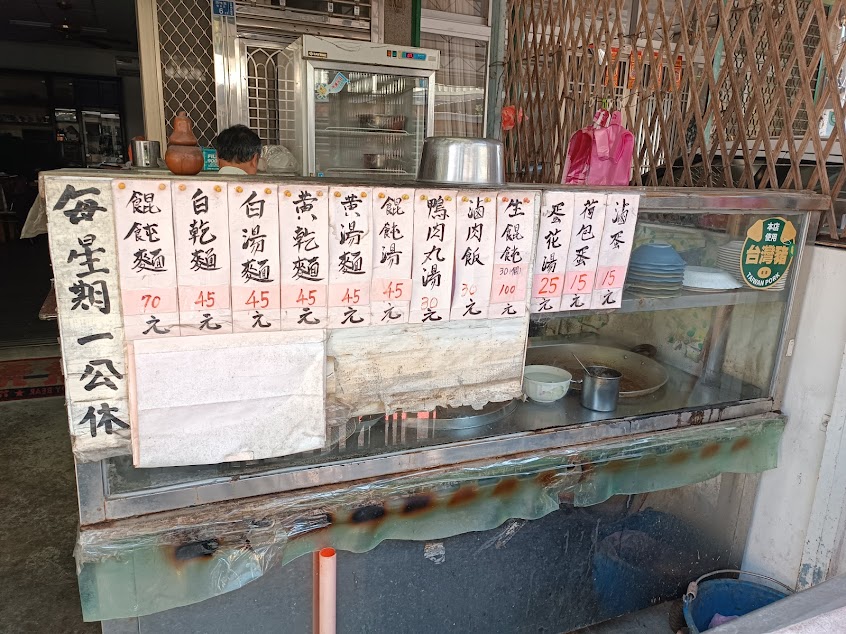 每星期一公休
餛飩麵 70元
白乾麵 45元
白湯麵 45元
黃乾麵 45元
黃湯麵 45元
餛飩湯 45元
鴨肉丸湯 30元
滷肉飯 30元
生餛飩 30個 100元
蛋花湯 25元
荷包蛋 15元
滷蛋 15元
本店
使用
台灣豬
TAIWAN PORK